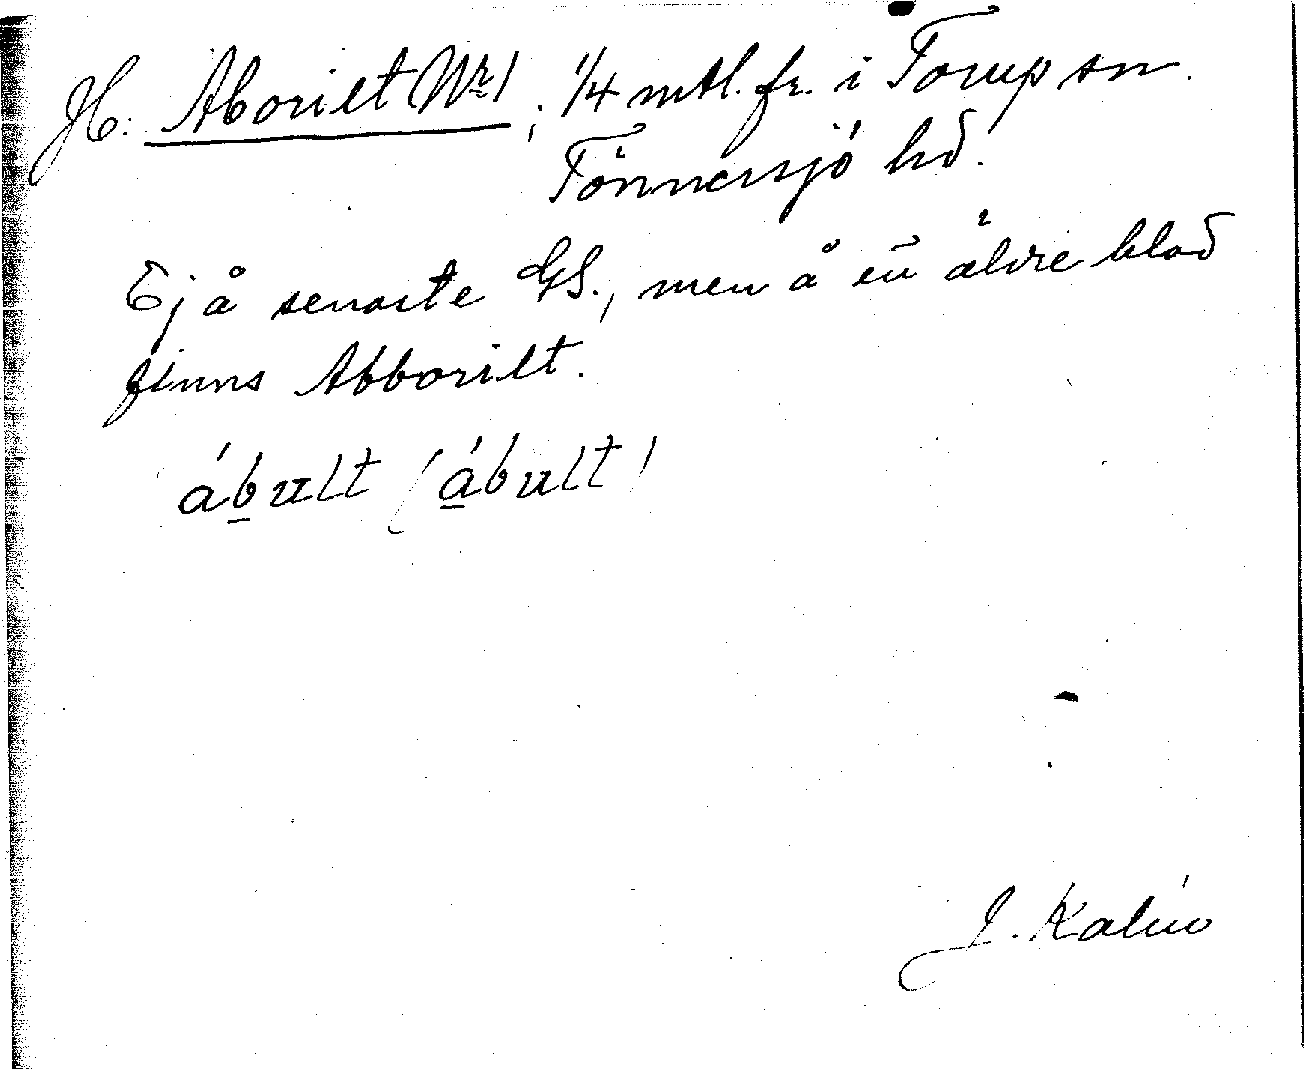 Hl: Aborilt Nr 1; 1/4 mtl. fr. i Torup sn.
Tönnersjö hd.
Ej å senaste GS., men å en äldre blad
finns Abborilt.
ábult (ábult)
J. Kalén